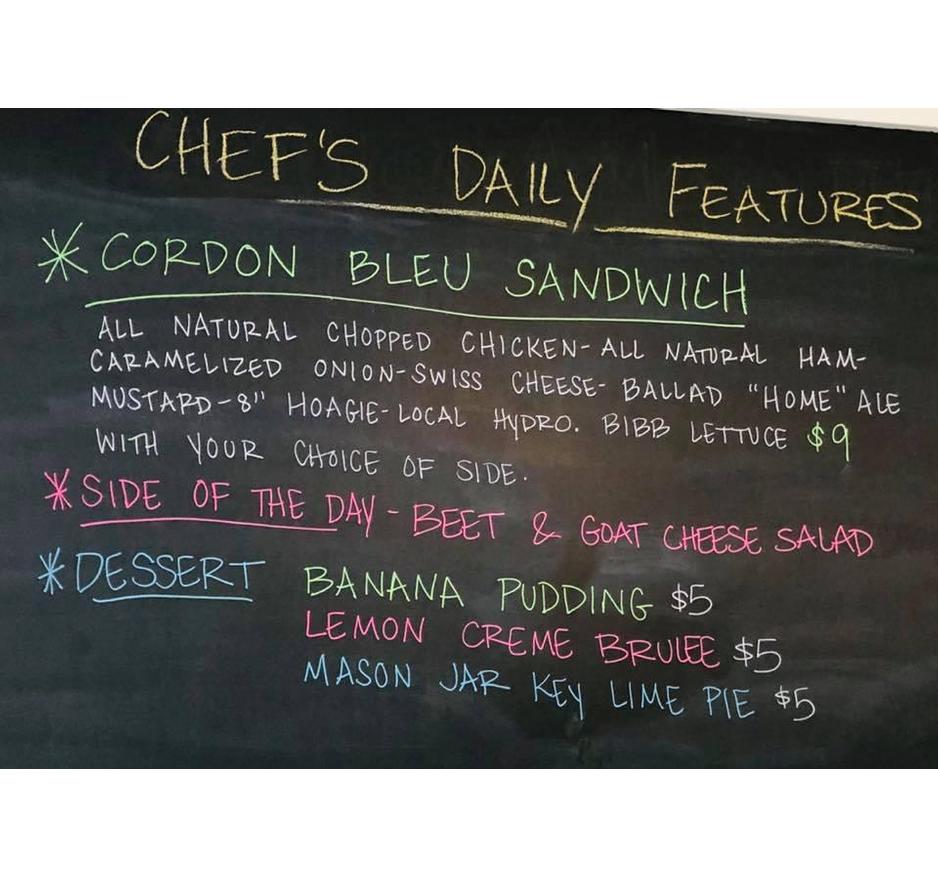 CHEF'S DAILY FEATURES
* CORDON BLEU SANDWICH
ALL NATURAL CHOPPED CHICKEN- ALL NATURAL HAM-
CARAMELIZED ONION-SWISS CHEESE- BALLAD "HOME" ALE
MUSTARD-8" HOAGIE-LOCAL HYDRO. BIBB LETTUCE $9
WITH YOUR CHOICE OF SIDE.
* SIDE OF THE DAY - BEET & GOAT CHEESE SALAD
* DESSERT BANANA PUDDING $5
LEMON CREME BRULEE $5
MASON JAR KEY LIME PIE $5